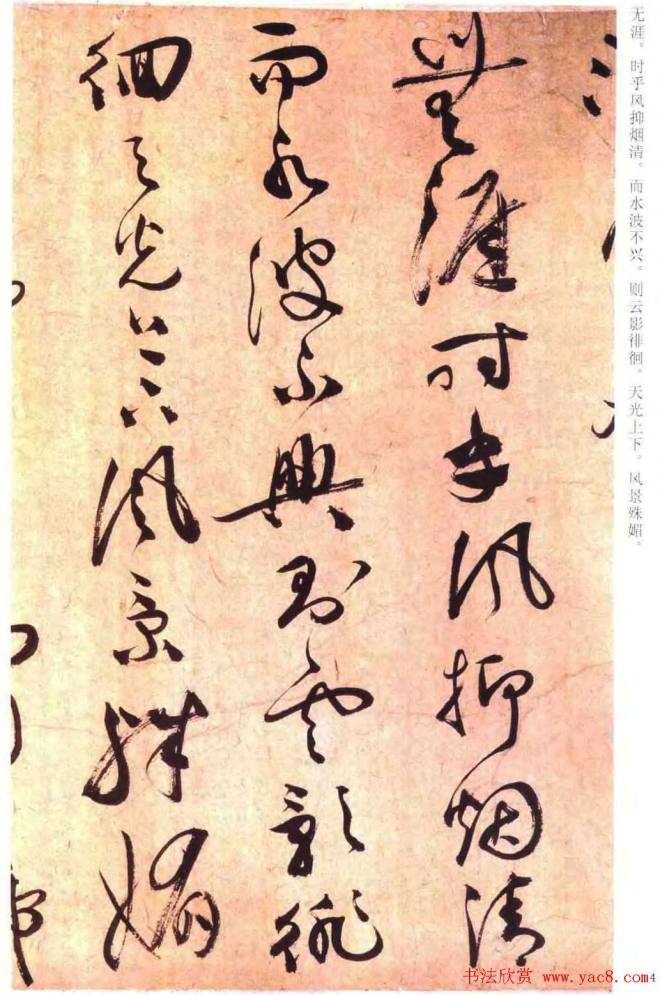 無涯时乎风抑烟清
而水波不興則雲影徘
徊天光上下风景殊媚
无涯。时乎风抑烟清。而水波不兴。则云影徘徊。天光上下。风景殊媚。
书法欣赏 www.yac8.com
4